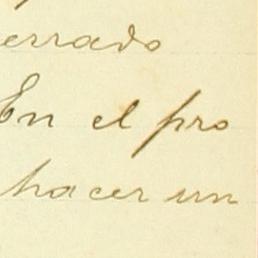 errado
En el pro
hacer un